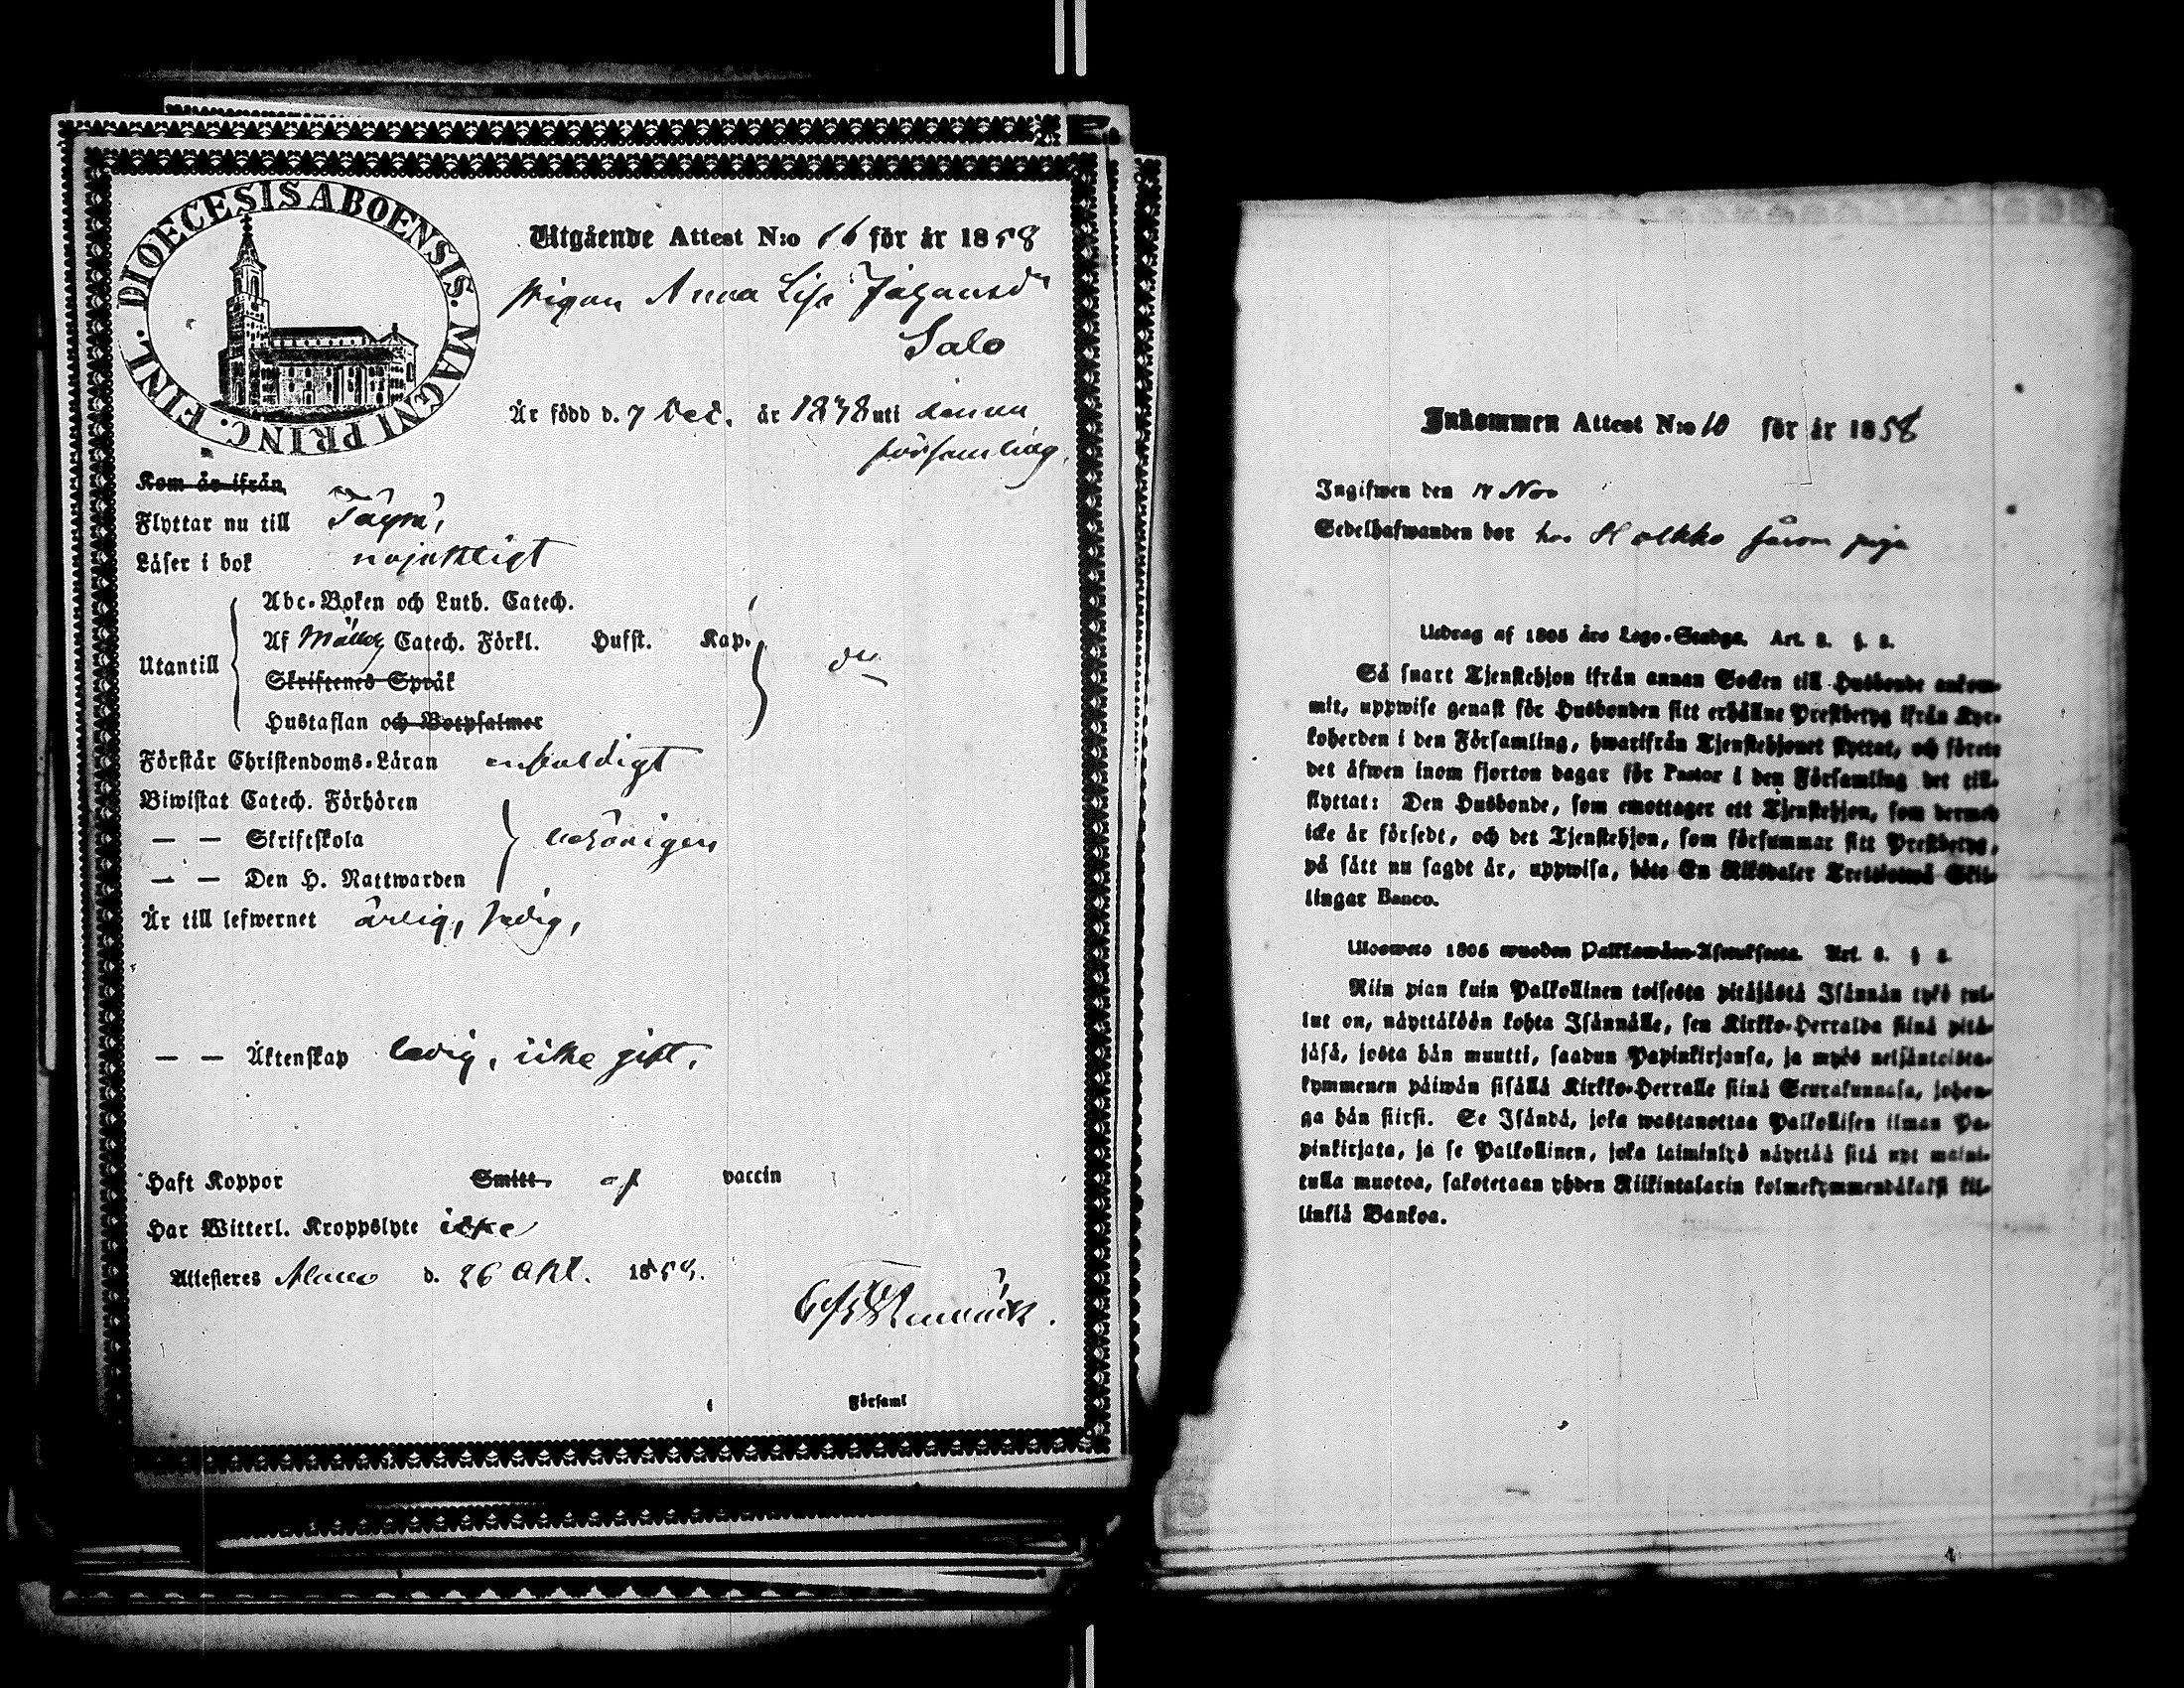 DIOECESIS ABOENSIS. MAGNI PRINC. FINL.
Utgående Attest N:o 16 för år 1858
Pigan Anna Lisa Johansdr
Salo
Är född d. 7 Dec. år 1838 uti denna
församling,
Kom år ifrån
Flyttar nu till
Läser i bok nöjaktligt
Utantill
Abc-Boken och Luth. Catech.
Af Möllers Catech. Förkl. Hufst. Kap.
Skriftenes Språk
Hustaflan och Botpsalmer
Förstår Christendoms-Läran enfaldigt
Biwistat Catech. Förhören
— — Skriftskola behörigen
— — Den H. Nattwarden
Är till lefwernet ärlig, sedig,
— — Äktenskap ledig, icke gift,
Haft Koppor Smitt. af vaccin
Har Witterl. Kroppslyte icke
Attesteras d. 26 Okt. 1858.
Församl
Inkommen Attest N:o 10 för år 1858
Ingifwen den 14 Nov
Sedelhafwanden bor hos Holkko såsom piga
Utdrag af 1805 års Lego-Stadga. Art. 2. §. 2.
Så snart Tjenstehjon ifrån annan Socken till Husbonde ankom-
mit, uppwise genast för Husbonden sitt erhållne Prestbetyg ifrån Kyr-
koherden i den Församling, hwarifrån Tjenstehjonet flyttat, och förete
det äfwen inom fjorton dagar för Pastor i den Församling det till-
flyttat: Den Husbonde, som emottager ett Tjenstehjon, som dermed
icke är försedt, och det Tjenstehjon, som försummar sitt Prestbetyg,
på sätt nu sagdt är, uppwisa, böte En Riksdaler Trettiotwå Skil-
lingar Banco.
Ulosweto 1805 wuoden Palkkawäen-Asetuksesta. Art. 2. § 2.
Niin pian kuin Palkollinen toisesta pitäjästä Isännän tykö tul-
lut on, näyttäköön kohta Isännälle, sen Kirkko-Herralda siinä pitä-
jäsä, josta hän muutti, saadun Papinkirjansa, ja myös neljäntoista-
kymmenen päiwän sisällä Kirkko-Herralle siinä Seurakunnasa, johon-
ga hän siirsi. Se Isändä, joka wastanottaa Palkollisen ilman Pa-
pinkirjata, ja se Palkollinen, joka laiminlyö näyttää sitä nyt maini-
tulla muotoa, sakotetaan yhden Riikintalarin kolmekymmendäkaksi kil-
linkiä Bankoa.